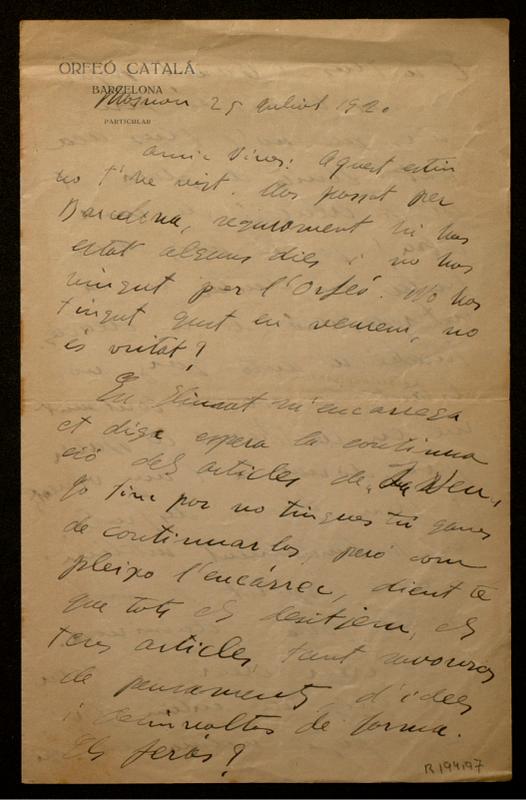 ORFEÓ CATALÁ
BARCELONA
PARTICULAR
25 Juliol 192.
Amic Vives: Aquest estiu
no t'he vist. Has passat per
Barcelona, segurament hi has
estat alguns dies i no has
vingut per l'Orfeó. No has
tingut gust en veurem, no
és veritat?
En m'encarrega
et digui espera la continua
ció dels articles de "La Veu".
Jo tinc por no tingues tu ganes
de continuarlos, però com
pleixo l'encárrec, dient te
que tots els desitjem, els
teus articles tant
de pensaments, d'idees
i desinvoltos de forma.
Els feràs?
R 19497